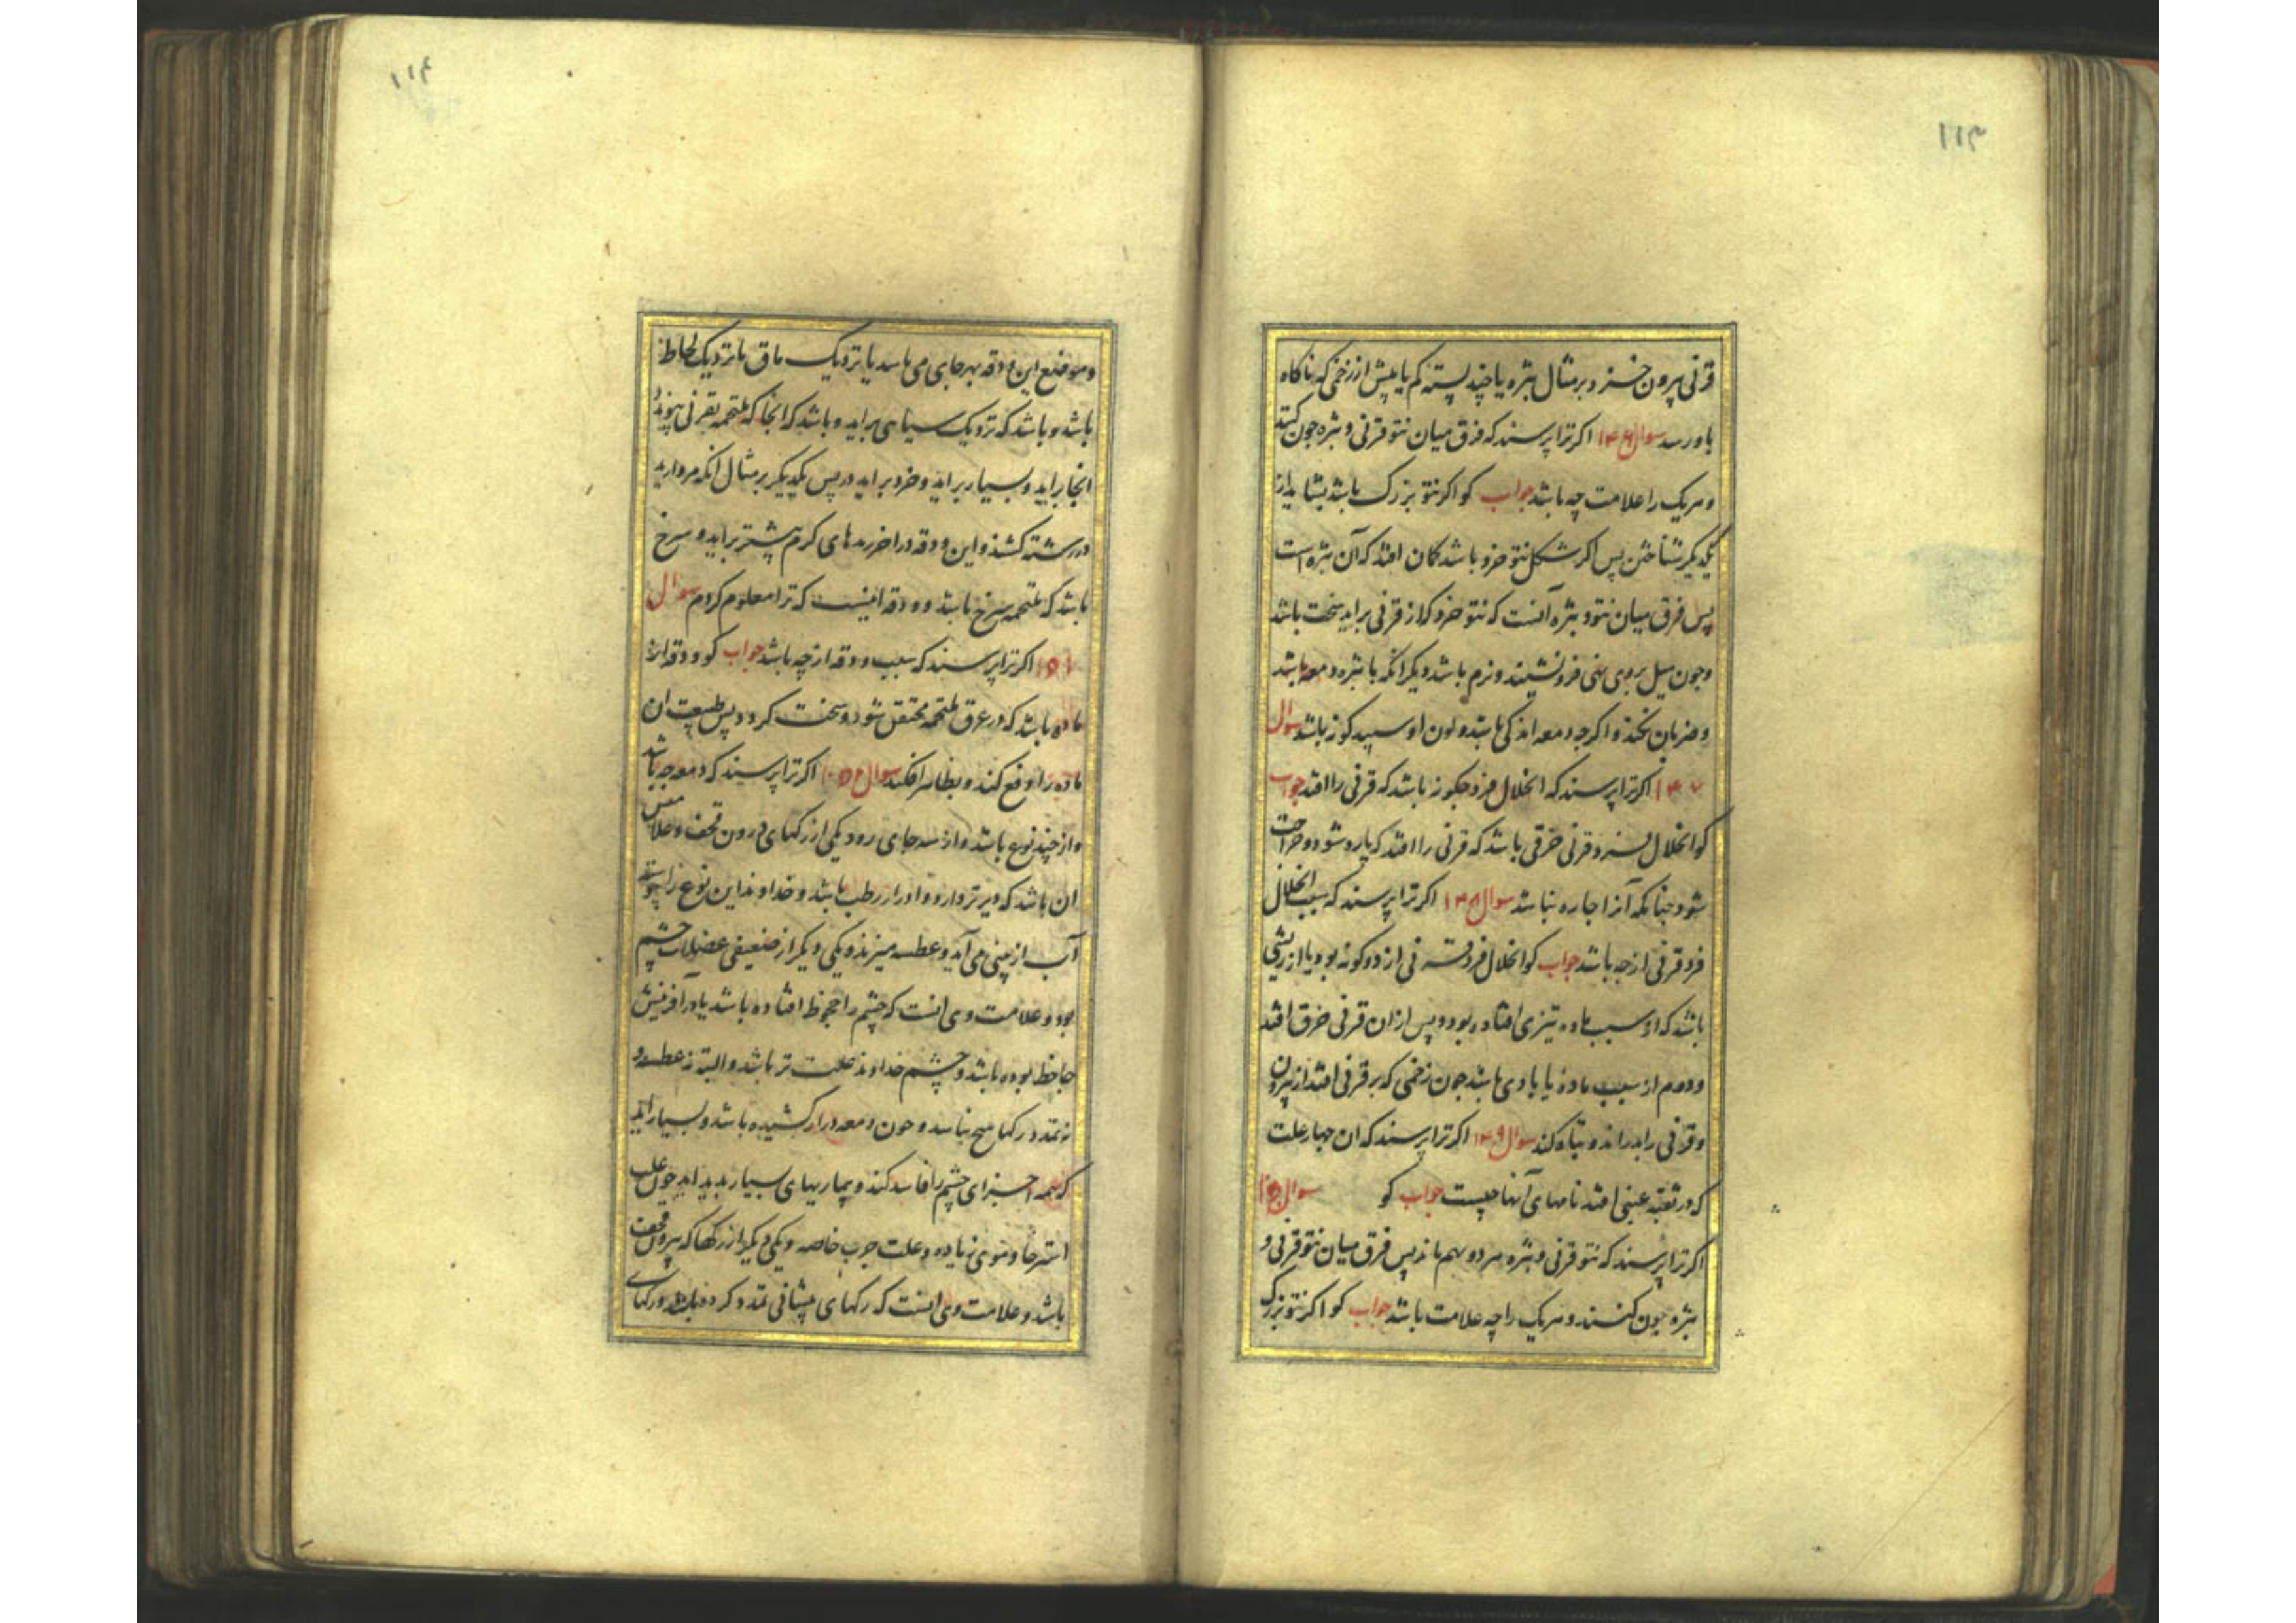 ۱۱۳
قرنی بیرون خیزد و بر مثال بثره یا چند پسته کم یا بیش از زخمی که ناکاه
باو رسد سوال ۱۴۶ اکر ترا پرسند که فرق میان نتو قرنی و بثره جون کنند
و هریک را علامت چه باشد جواب کو اکر نتو بزرک باشد بشاید از
یکدیکر شناختن پس اکر شکل نتو خرد باشد کمان افتد که آن بثره است
پس فرق میان نتو و بثره آنست که نتو خرد که از قرنی براید سخت باشد
و جون میل بروی نهی فرو نشیند و نرم باشد دیکر انکه با بثره دمعه باشد
و ضربان نکند و اکر چه دمعه اندکی باشد و لون او سپید کونه باشد سوال
۱۴۷ اکر ترا پرسند که انحلال فرد چکونه باشد که قرنی را افتد جواب
کو انحلال فرد قرنی خرقی باشد که قرنی را افتد که پاره شود و جراحت
شود چنانکه آنرا چاره نباشد سوال ۱۴۸ اکر ترا پرسند که سبب انحلال
فرد قرنی از چه باشد جواب کو انحلال فرد قرنی از دو کونه بود یا از ریشی
باشد که از سبب ماده تیزی افتاده بود و پس از ان قرنی خرق افتد
و دوم از سبب ماده یا بادی باشد جون زخمی که بر قرنی افتد از بیرون
و قرنی را بدراند و تباه کند سوال ۱۴۹ اکر ترا پرسند که ان چهار علت
که در ثقبه عینی افتد نامهای آنها چیست جواب کو سوال
اکر ترا پرسند که نتو قرنی و بثره هر دو بهم ماند پس فرق میان نتو قرنی و
بثره جون کنند و هریک را چه علامت باشد جواب کو اکر نتو بزرک
۱۱۴
و موضع این ودقه بهر جای می باشد یا نزدیک ماق یا نزدیک لحاظ
باشد و باشد که نزدیک سیاهی براید و باشد که انجا که ملتحمه بقرنی پیوندد
انجا براید و بسیار براید و خرد براید در پس یکدیکر بر مثال انکه مروارید
در رشته کشند و این ودقه در اخر رمدهای کرم بیشتر براید و سرخ
باشد که ملتحمه سرخ باشد و ودقه اینست که ترا معلوم کردم سوال
۱۵۱ اکر ترا پرسند که سبب ودقه از چه باشد جواب کو ودقه از
ماده باشد که در عرق ملتحمه محتقن شود و سخت کردد پس طبیعت ان
ماده را دفع کند و بظاهر افکند سوال ۱۵۲ اکر ترا پرسند که دمعه چه باشد
و از چند نوع باشد و از سه جای رود یکی از رکهای درون قحف و علامتش
ان باشد که دیرتر دارو و او را رطب باشد و خداوند این نوع را پیوسته
آب از بینی می آید و عطسه میزند و یکی دیکر از ضعیفی عضلات چشم
بود و علامت وی انست که چشم را جحوظ افتاده باشد یا در آفرینش
جاحظ بوده باشد و چشم خداوند علت تر باشد و البته نه عطسه و
نه تمدد رکها هیچ نباشد و جون دمعه دراز کشیده باشد و بسیار اید
که همه اجزای چشم را فاسد کند و بیماریهای بسیار پدید اید جون علت
استرخا و موی زیاده و علت جرب خاصه و یکی دیکر از رکها که بیرون قحف
باشد و علامت وی انست که رکهای پیشانی تمدد کرده باشد و رکهای